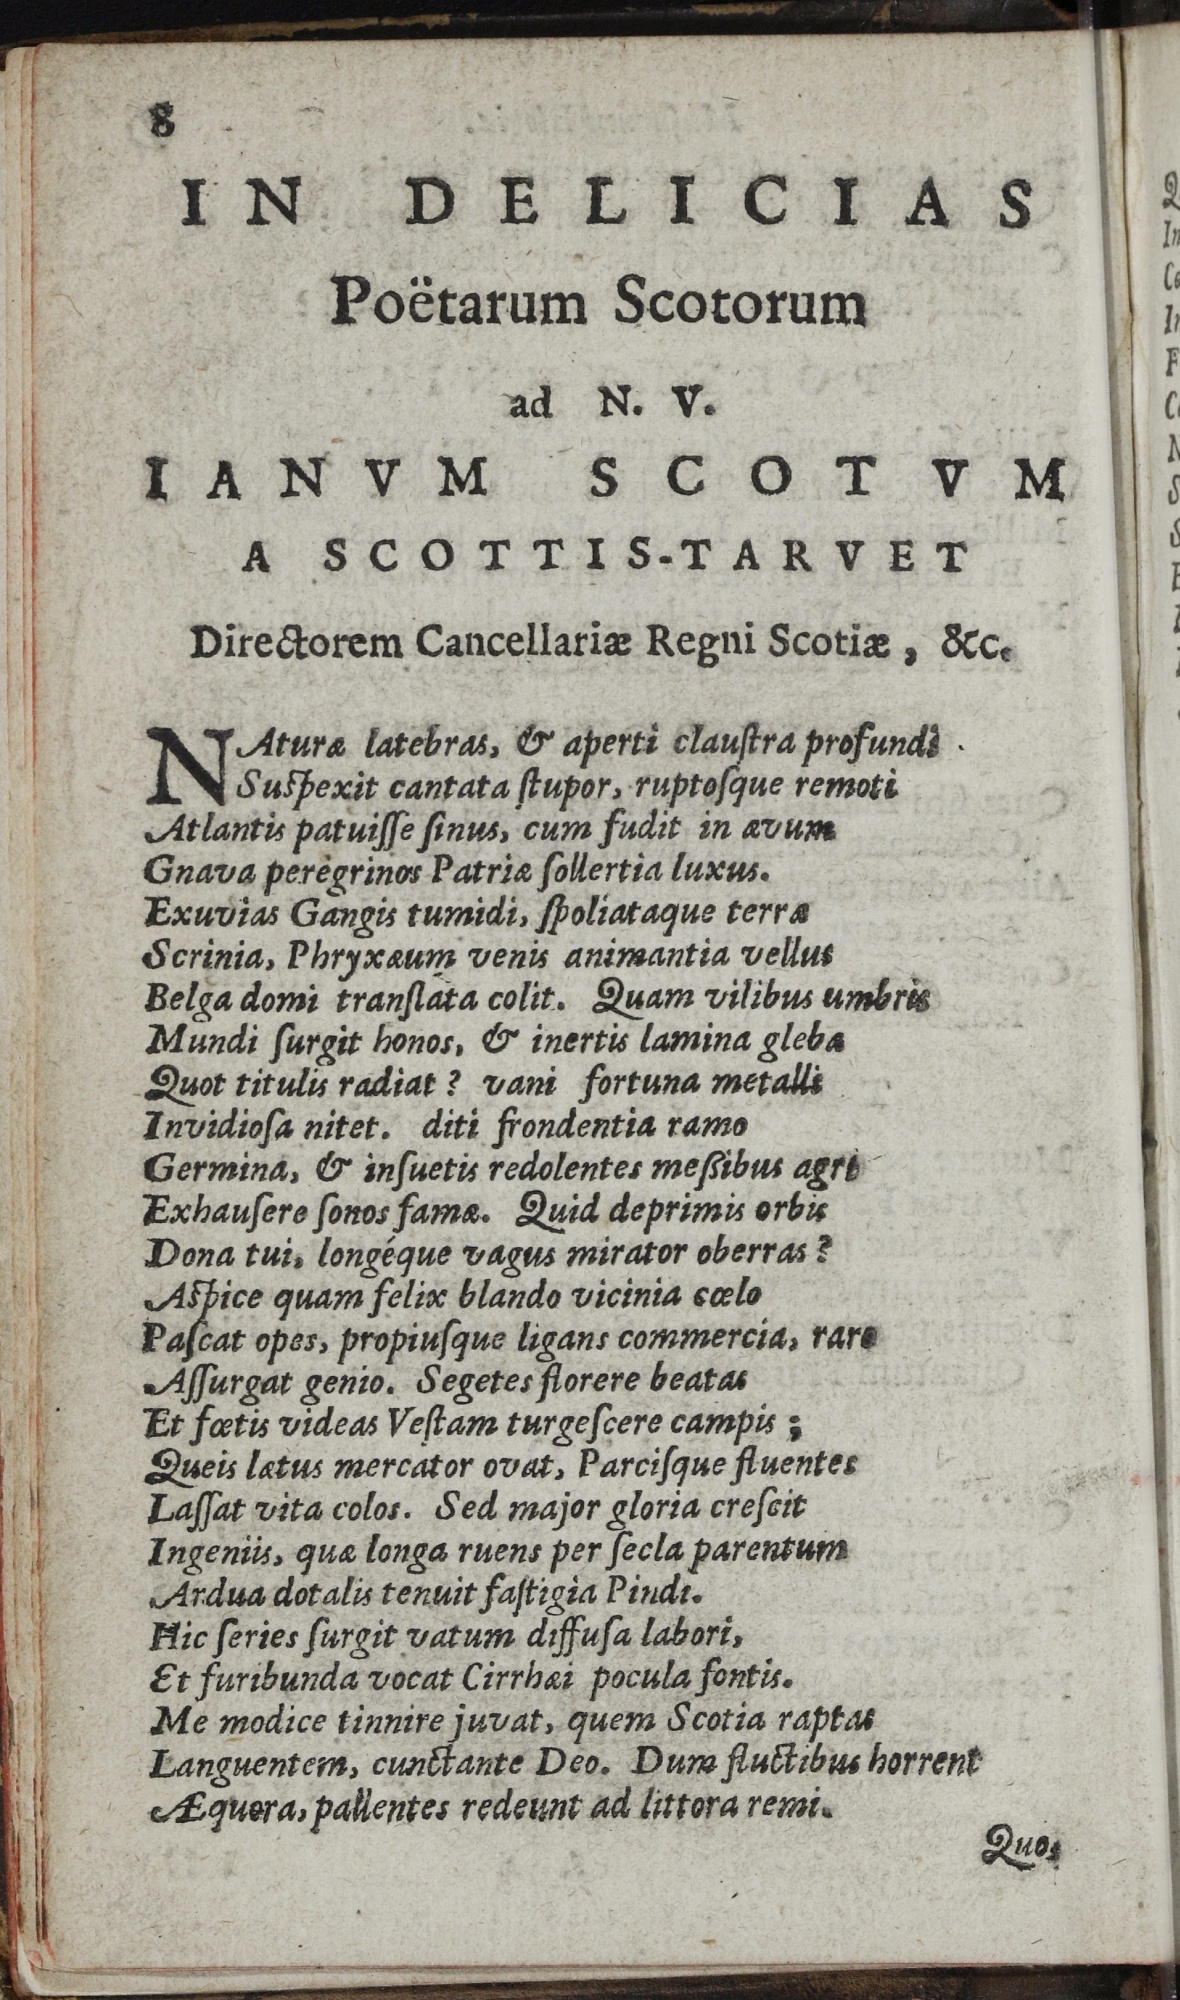 8
IN DELICIAS
Poëtarum Scotorum
ad N. V.
IANVM SCOTVM
A SCOTTIS-TARVET
Directorem Cancellariæ Regni Scotiæ, &c.
NAturæ latebras, & aperti clauſtra profundi
Suſpexit cantata ſtupor, ruptoſque remoti
Atlantis patuiſſe ſinus, cum fudit in ævum
Gnava peregrinos Patriæ ſollertia luxus.
Exuvias Gangis tumidi, ſpoliataque terræ
Scrinia, Phryxæum venis animantia vellus
Belga domi tranſlata colit. Quam vilibus umbris
Mundi ſurgit honos, & inertis lamina glebæ
Quot titulis radiat? vani fortuna metalli
Invidioſa nitet. diti frondentia ramo
Germina, & inſuetis redolentes meßibus agri
Exhauſere ſonos famæ. Quid deprimis orbis
Dona tui, longéque vagus mirator oberras?
Aſpice quam felix blando vicinia cœlo
Paſcat opes, propiuſque ligans commercia, raro
Aſſurgat genio. Segetes florere beatas
Et fœtis videas Veſtam turgeſcere campis;
Queis lætus mercator ovat, Parciſque fluentes
Laſſat vita colos. Sed major gloria creſcit
Ingeniis, quæ longa ruens per ſecla parentum
Ardua dotalis tenuit faſtigia Pindi.
Hic ſeries ſurgit vatum diffuſa labori,
Et furibunda vocat Cirrhæi pocula fontis.
Me modice tinnire juvat, quem Scotia raptas
Languentem, cunctante Deo. Dum fluctibus horrent
Æquora, pallentes redeunt ad littora remi.
Quos